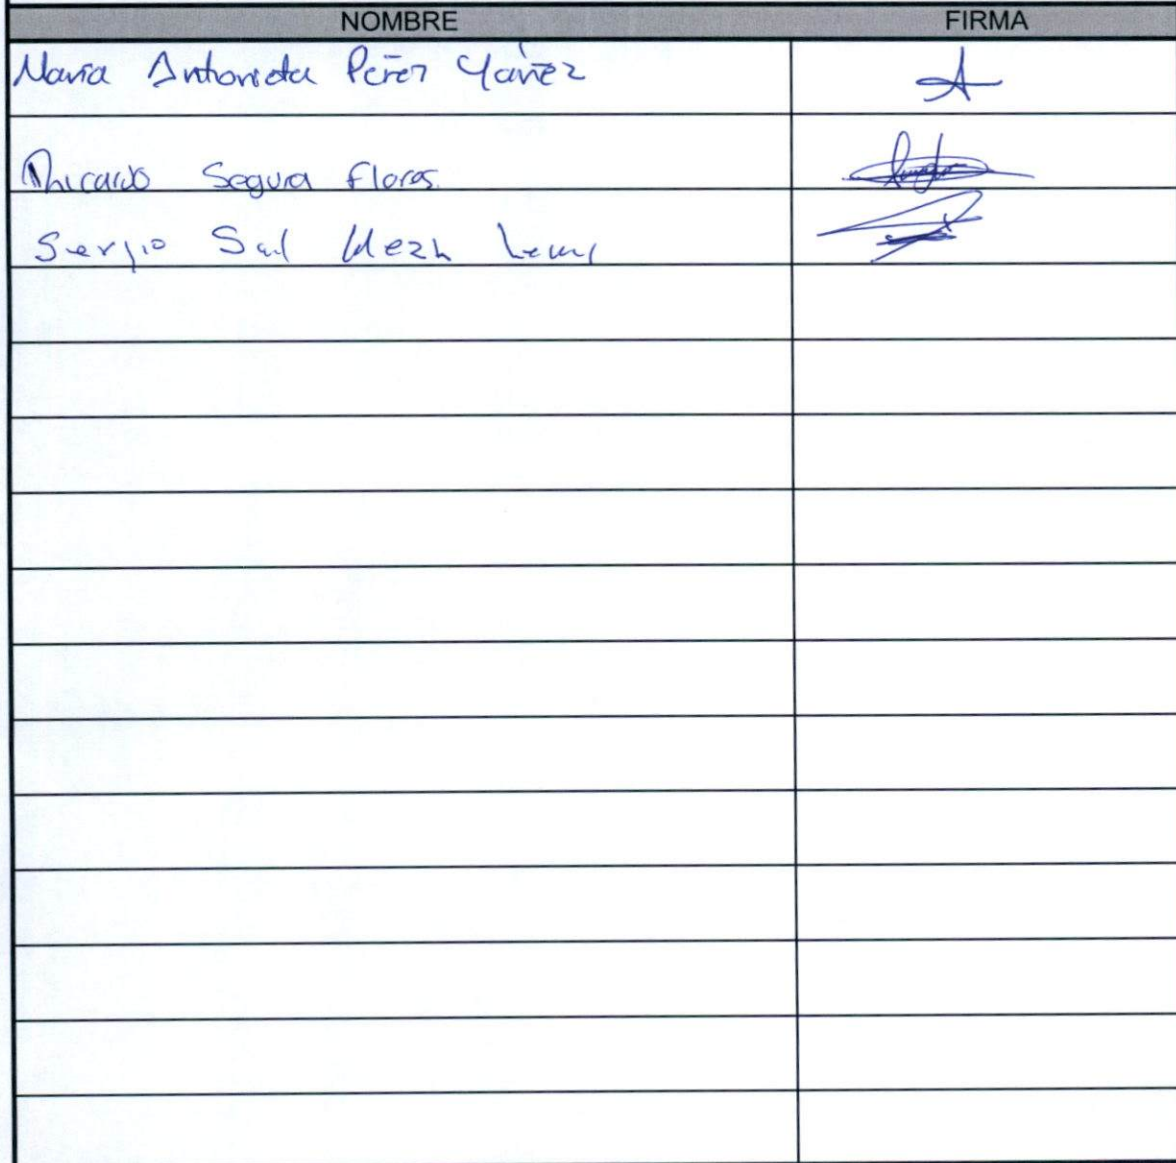 NOMBRE FIRMA
María Antonieta Pérez Yáñez
Ricardo Segura Flores.
Sergio